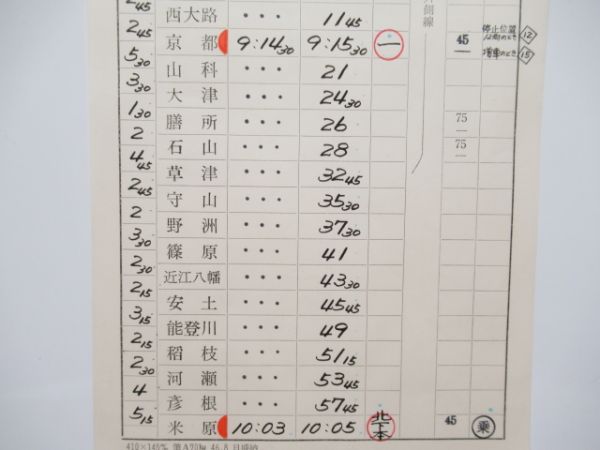 2 45 西大路 ・・・ 11 45
2 45 京都 9:14 30 9:15 30 一 45 停止位置 12
5 30 山科 ・・・ 21 増車のとき 15
3 30 大津 ・・・ 24 30
1 30 膳所 ・・・ 26 75
2 石山 ・・・ 28 75
4 45 草津 ・・・ 32 45
2 45 守山 ・・・ 35 30
2 野洲 ・・・ 37 30
3 30 篠原 ・・・ 41
2 30 近江八幡 ・・・ 43 30
2 15 安土 ・・・ 45 45
3 15 能登川 ・・・ 49
2 15 稲枝 ・・・ 51 15
2 30 河瀬 ・・・ 53 45
4 彦根 ・・・ 57 45
5 15 米原 10:03 10:05 北下本 45 乗
外側線